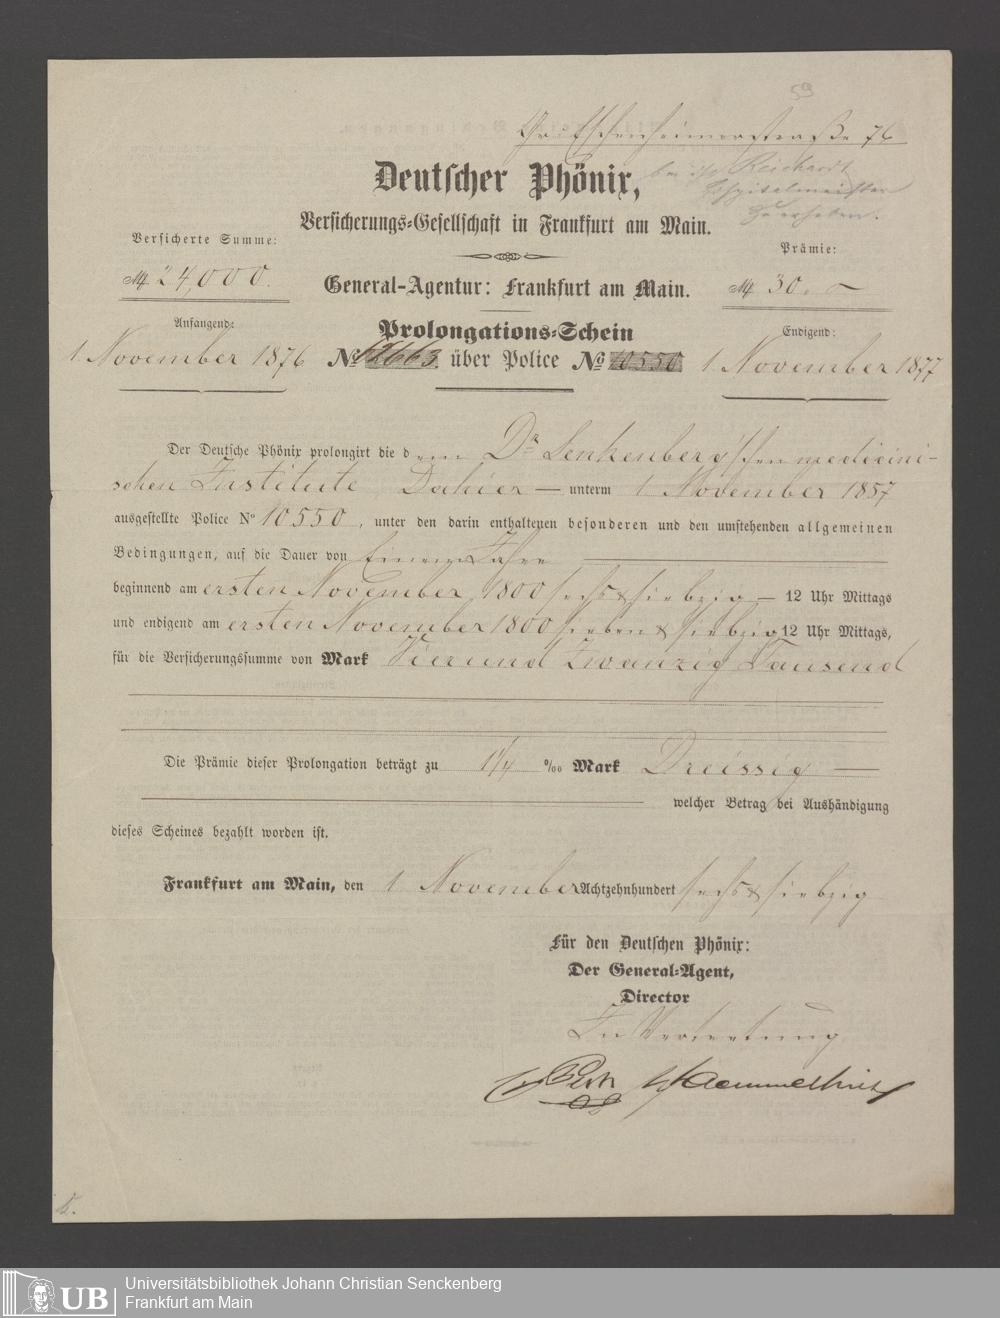 59
Gr. Eschenheimerstraße 76
bei ihr Reichardt
Hospitalmeister
zu erheben.
Deutscher Phönix,
Versicherungs-Gesellschaft in Frankfurt am Main.
Versicherte Summe:
Prämie:
M 24,000.
General-Agentur: Frankfurt am Main.
M 30.
Anfangend:
Prolongations-Schein
Endigend:
1. November 1876
No 12663. über Police No 10550
1. November 1877
Der Deutsche Phönix prolongirt die dem Dr Senkenberg'schen medicini-
schen Institute, Dahier — unterm 1. November 1857
ausgestellte Police No 10550, unter den darin enthaltenen besonderen und den umstehenden allgemeinen
Bedingungen, auf die Dauer von Einem Jahre
beginnend am ersten November 1800 sechs & siebzig — 12 Uhr Mittags
und endigend am ersten November 1800 sieben & siebzig 12 Uhr Mittags,
für die Versicherungssumme von Mark Vierund Zwanzig Tausend
Die Prämie dieser Prolongation beträgt zu 1 1/4 ‰ Mark Dreissig —
welcher Betrag bei Aushändigung
dieses Scheines bezahlt worden ist.
Frankfurt am Main, den 1. November Achtzehnhundert sechs & siebzig
Für den Deutschen Phönix:
Der General-Agent,
Director
In Vertretung
UB
Universitätsbibliothek Johann Christian Senckenberg
Frankfurt am Main